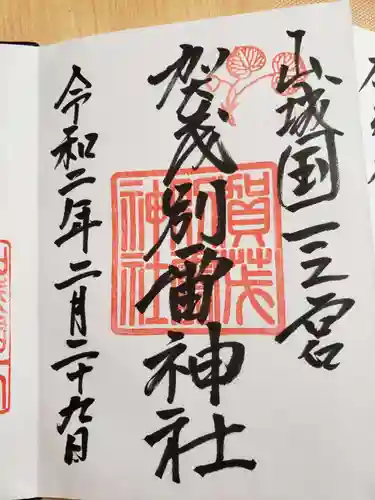 山城国一之宮
賀茂別雷神社
賀茂別雷神社
令和二年二月二十九日